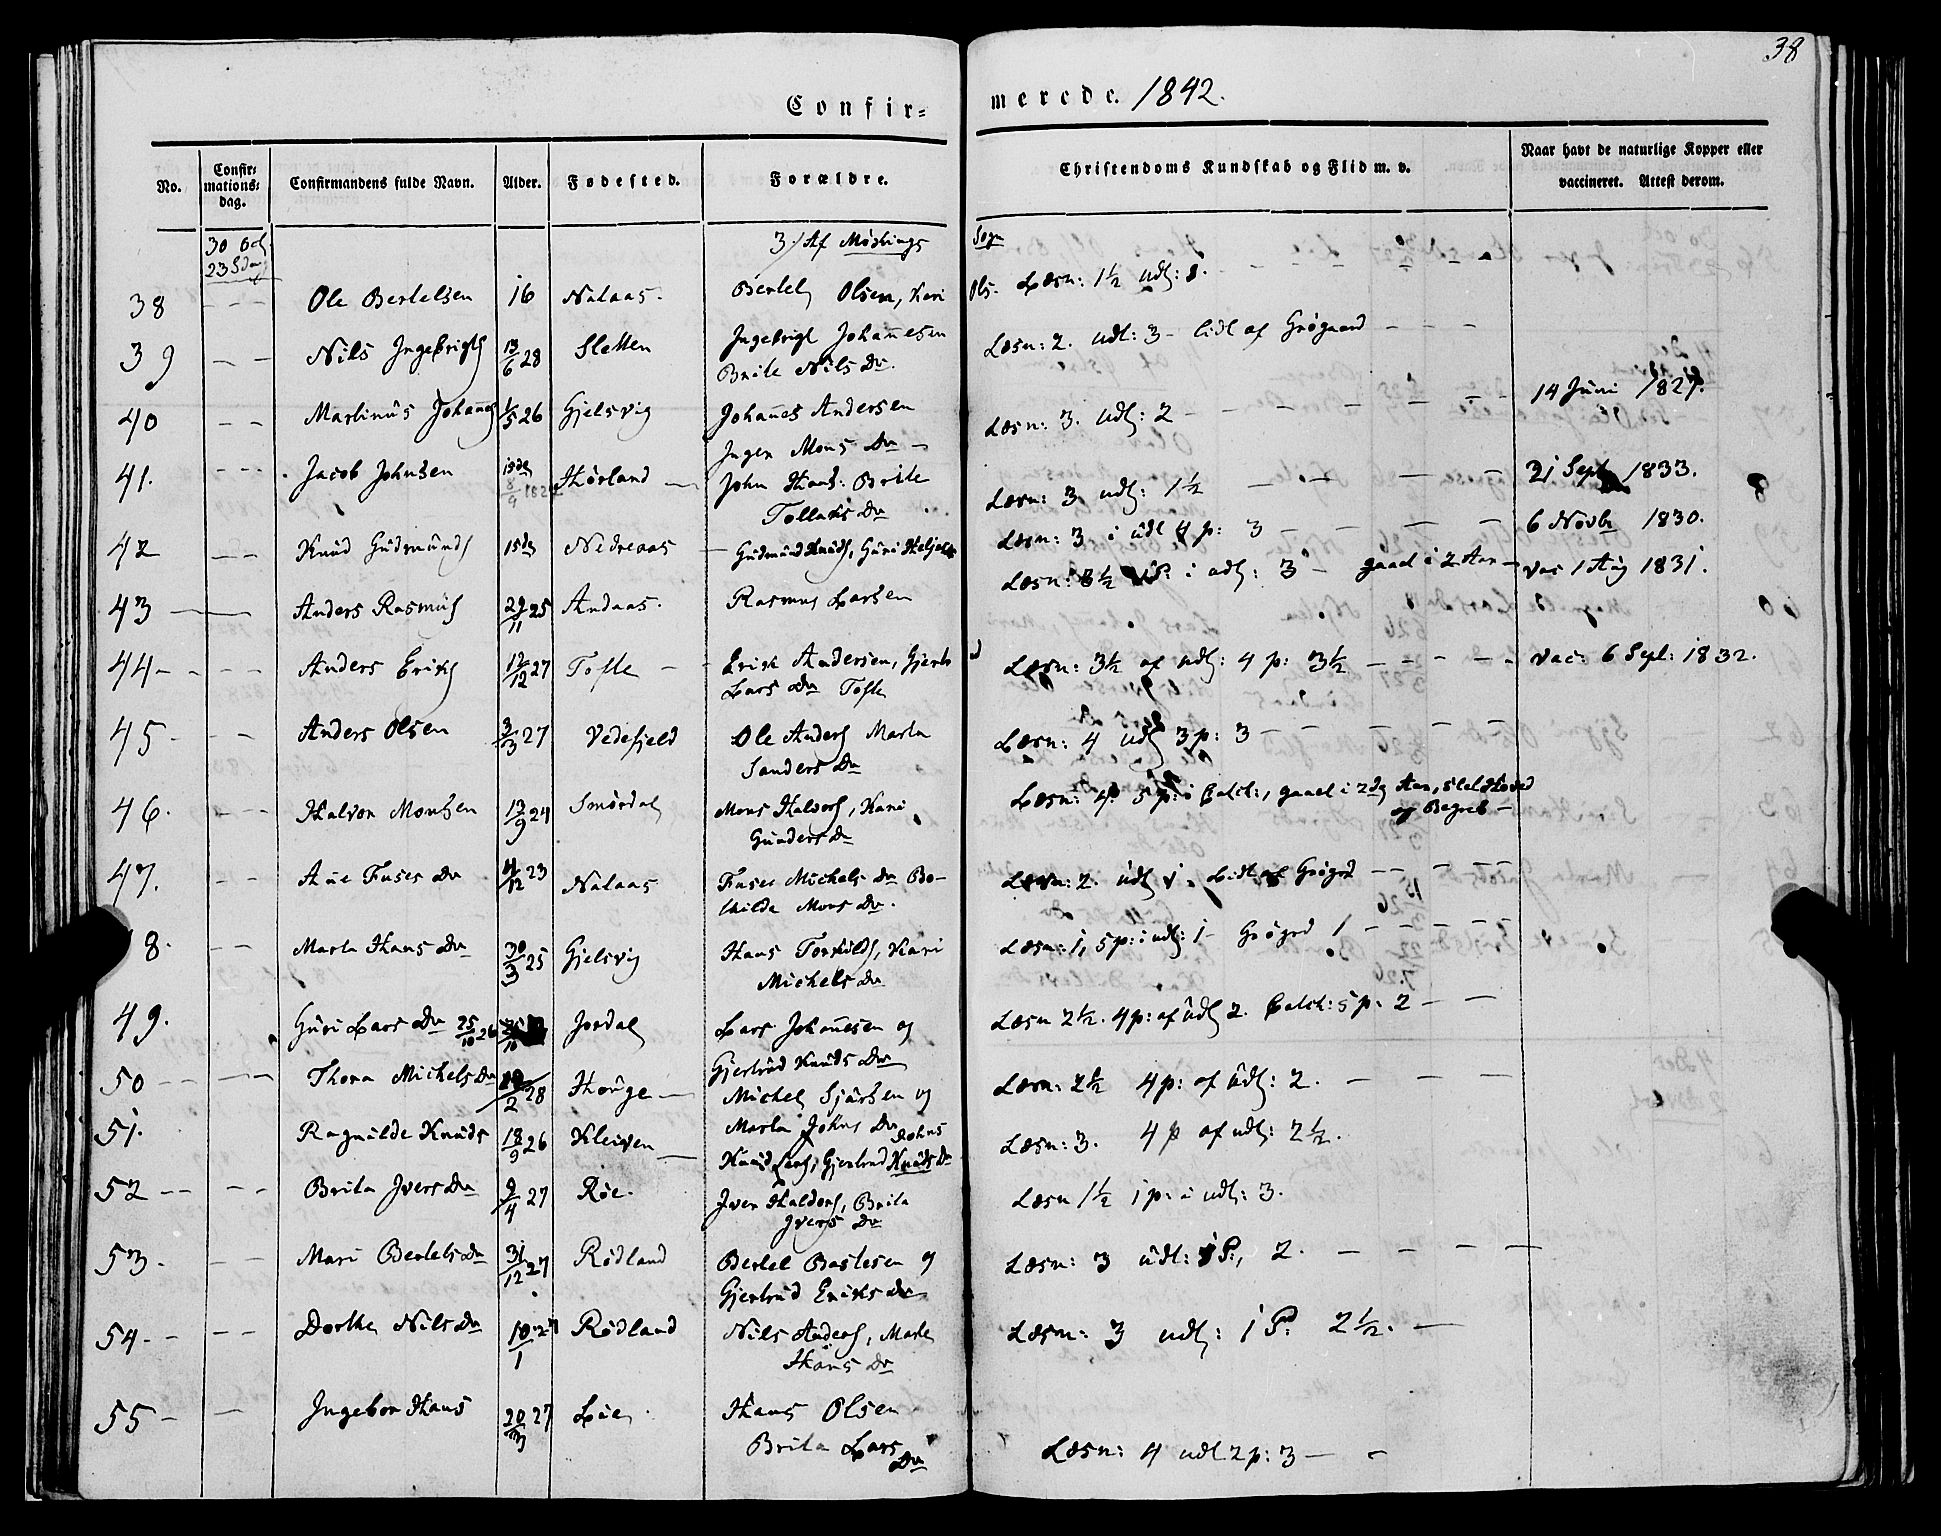 38
Confir-
merede. 1842.
No.
Confir-
mations-
dag.
Confirmandens fulde Navn.
Alder.
Fødested.
Forældre.
Christendoms Kundskab og Flid m. v.
Naar havt de naturlige Kopper eller
vaccineret. Attest derom.
30 Oct.
3/ Af
Sogn
38 - - - Ole Bertelsen 16 Nataas. Olsen, Kari Ols. Læsn: 1½ udl: 1.
39 - - Nils Ingebrigts 13/6 28 Sletten Ingebrigt Johannesen
Brite Nils Dr. Læsn: 2. udl: 3 - lidt af Grøgaard - - -
40 - - Martinus Johannes 1/5 26 Gjelsvig Johannes Andersen
Inger Mons Dr - Læsn: 3. udl: 2 - - - - - 14 Juni 1827.
41. - - - Jacob Johnsen Hørland John Hans: Brite
Tollaks Dr Læsn: 3 udl: 1½ - - - - 21 Sept 1833.
42 - - Knud Gudmunds Nedreaas - Gudmund Knuds, Guri
Læsn: 3 i udl 4 p: 3 - - - - 6 Novbr 1830.
43 - - Anders Rasmus 29/11 25 Andaas. Rasmus Larsen
Læsn: 3½ i udl: 3 - gaael i 2 Aar - vac 1 Aug 1831.
44 - - - Anders Eriks 12/12 27 Tofte - - Erik Andersen, Gjert
Lars Dr Tofte Læsn: 3½ af udl: 4 p: 3½ - - - - vac: 6 Sept: 1832.
45 - - - Anders Olsen 3/3 27 Vedefjeld Ole Anders Marta
Sanders Dr Læsn: 4 udl 3 p: 3 - - - - -
46. - - - Halvor Monsen 13/9 24 Smørdal Mons Halvors, Kari
Gunders Dr Læsn: 4. 5 p: i Catech:, gaael i 2 Aar, slet Hoved
og Begreb -
47. - - Ane Fuses Dr 4/12 23 Nataas Fuse Michels Dr Bo-
thilde Mons Dr. Læsn: 2. udl 1. Lidt af Grøgrd - - - -
8. - - Marta Hans Dr 30/3 25 Gjelsvig Hans Torkilds, Kari
Michels Dr Læsn: 1, 5 p: i udl: 1 - Grøgrd 1 - - - -
49. Guri Lars Dr 25/10 26 Jordal Lars Johannesen og
Gjertrud Knuds Dr Læsn 2½. 4 p: af udl 2. Catech: 5 p: 2 - -
50 - - - - Thora Michels Dr 2 28 Houge - Michel Sjursen og
Marta Johns Dr Læsn: 2½ 4 p: af Udl: 2. - - -
51. Ragnilde Knuds 18/9 26 Kleiven - Knud Lars, Gjertrud Knuds Dr
Johns
Læsn: 3. 4 p af udl: 2½.
52 - - - - Brita Ivers Dr 9/4 27 Røe. Iver Haldors, Brita
Ivers Dr Læsn 1½ 1 p: i udl: 3.
53. - - Mari Bertels Dr 31/12 27 Rødland Bertel og
Gjertrud Eriks Dr Læsn: 3 udl: 1 P:, 2. - - - -
54. - - - - Dorthe Nils Dr 10/1 27 Rødland Nils Anders, Marta
Hans Dr Læsn: 3 udl: 1 P: 2½. -
55 - - Ingebor Hans 20/3 27 Lie. Hans Olsen
Brita Lars
Dr Læsn: 4 udl 2 p: 3 - -